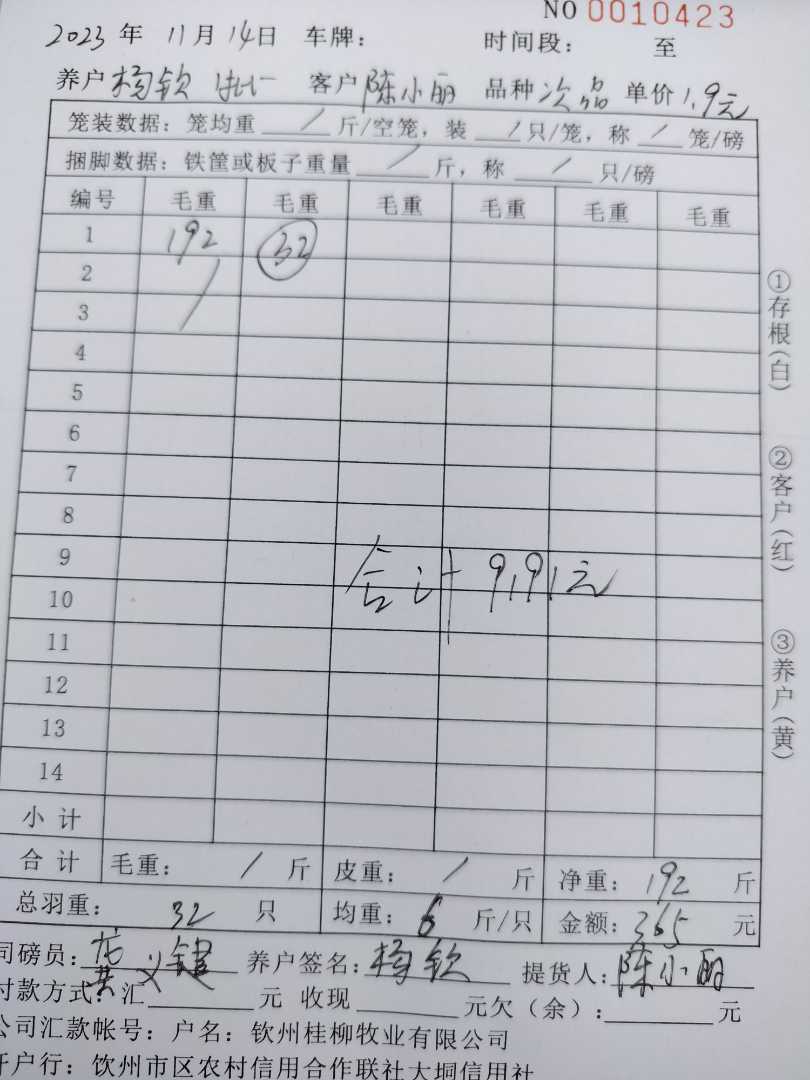 NO 0010423
2023 年 11 月 14 日 车牌： 时间段： 至
养户 杨钦 客户 陈小丽 品种 次品 单价 1.9元
笼装数据：笼均重 / 斤/空笼，装 / 只/笼，称 / 笼/磅
捆脚数据：铁筐或板子重量 / 斤，称 / 只/磅
编号 毛重 毛重 毛重 毛重 毛重 毛重
1 192 32
2 /
3
4
5
6
7
8
9
合计 9191元
10
11
12
13
14
小计
合计 毛重： / 斤 皮重： / 斤 净重： 192 斤
总羽重： 32 只 均重： 6 斤/只 金额： 365 元
司磅员： 养户签名： 杨钦 提货人： 陈小丽
付款方式： 汇 元 收现 元欠（余）： 元
公司汇款帐号：户名：钦州桂柳牧业有限公司
开户行：钦州市区农村信用合作联社大垌信用社
①存根(白)
②客户(红)
③养户(黄)